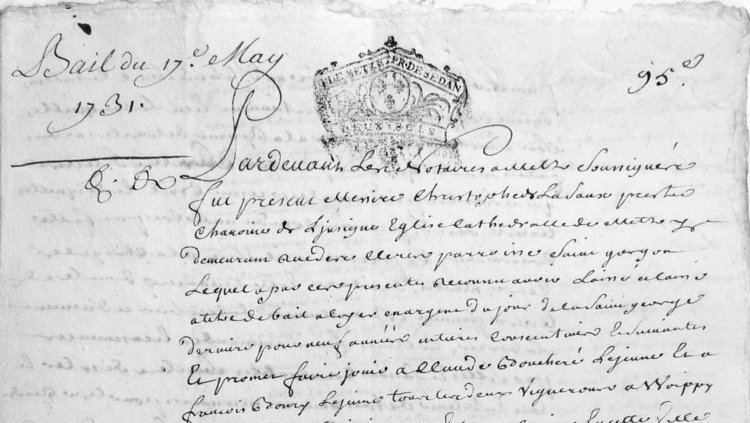 Bail du 17.e May
1731.
95.e
DE METZ ET P.R DE SEDAN
DEUX SOLS
Pardevant Les Notaires a Metz Soussignéz
fut present Messire Christophe de La Saux prestre
Chanoine de L'insigne Eglise Cathedralle de Metz y
demeurant Rue parroisse Saint gorgon
Lequel a par ces presentes Reconnu avoir Laissé et laisse
a titre de bail a loyer en argent du jour de la Saint george
derniere pour neuf années entieres Consecutives Et Suivantes
Et promet faire jouir a Claude Le jeune Et a
françois Le jeune tous les deux Vignerons a Woippy